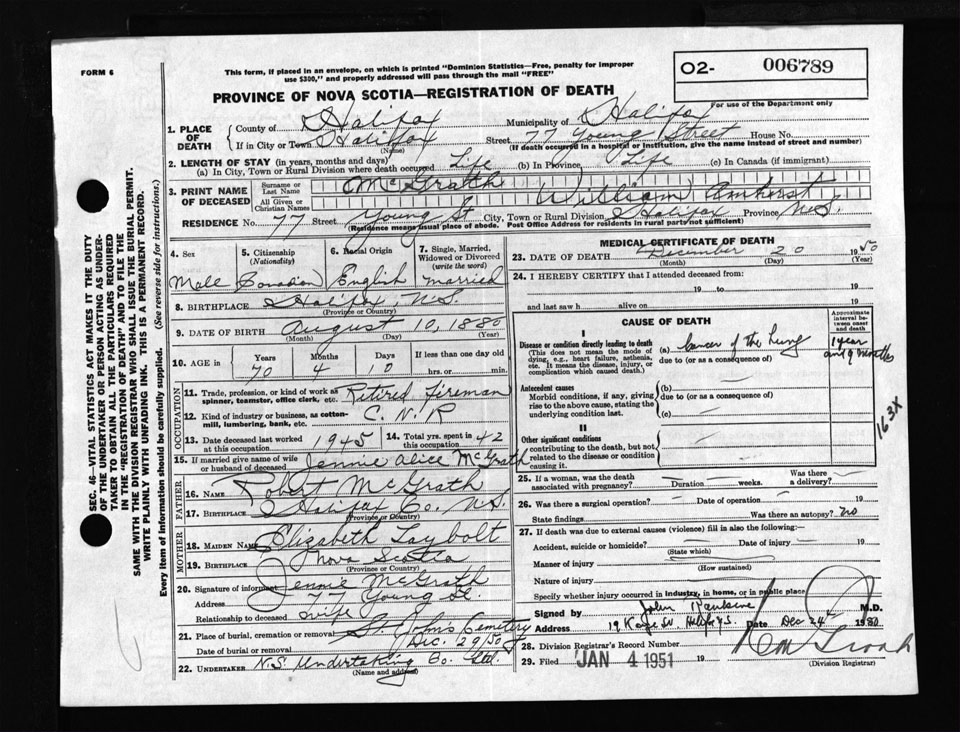 FORM 6
This form, if placed in an envelope, on which is printed "Dominion Statistics—Free, penalty for improper
use $300," and properly addressed will pass through the mail "FREE"
O2- 006789
For use of the Department only
PROVINCE OF NOVA SCOTIA—REGISTRATION OF DEATH
1. PLACE OF DEATH
County of Halifax Municipality of Halifax
If in City or Town Halifax Street 77 Young Street House No.
(Name) (If death occurred in a hospital or institution, give the name instead of street and number)
2. LENGTH OF STAY (in years, months and days)
(a) In City, Town or Rural Division where death occurred Life (b) In Province Life (c) In Canada (if immigrant)
3. PRINT NAME OF DECEASED
Surname or Last Name McGrath
All Given or Christian Names William Amherst
RESIDENCE No. 77 Street Young St City, Town or Rural Division Halifax Province N.S.
(Residence means usual place of abode. Post Office Address for residents in rural parts not sufficient)
4. Sex Male
5. Citizenship (Nationality) Canadian
6. Racial Origin English
7. Single, Married, Widowed or Divorced (write the word) married
8. BIRTHPLACE Halifax N.S.
(Province or Country)
9. DATE OF BIRTH August 10, 1880
(Month) (Day) (Year)
10. AGE in Years Months Days If less than one day old
70 4 10 hrs. or min.
OCCUPATION
11. Trade, profession, or kind of work as spinner, teamster, office clerk, etc. Retired Fireman
12. Kind of industry or business, as cotton-mill, lumbering, bank, etc. C.N.R
13. Date deceased last worked at this occupation 1945
14. Total yrs. spent in this occupation 42
15. If married give name of wife or husband of deceased Jennie Alice McGrath
FATHER
16. NAME Robert McGrath
17. BIRTHPLACE Halifax Co. N.S.
(Province or Country)
MOTHER
18. MAIDEN NAME Elizabeth Laybolt
19. BIRTHPLACE Nova Scotia
(Province or Country)
20. Signature of informant Jennie McGrath
Address 77 Young St.
Relationship to deceased wife
21. Place of burial, cremation or removal St. John's Cemetery
Date of burial or removal Dec. 29, 50
22. UNDERTAKER N.S. Undertaking Co. Ltd.
(Name and address)
MEDICAL CERTIFICATE OF DEATH
23. DATE OF DEATH December 20 1950
(Month) (Day) (Year)
24. I HEREBY CERTIFY that I attended deceased from
19 to 19
and last saw h alive on 19
CAUSE OF DEATH
Approximate interval between onset and death
I
Disease or condition directly leading to death (a) Cancer of the Lung 1 year and 9 months
(This does not mean the mode of dying, e.g., heart failure, asthenia, etc. It means the disease, injury, or complication which caused death.)
due to (or as a consequence of)
Antecedent causes (b) —
Morbid conditions, if any, giving rise to the above cause, stating the underlying condition last.
due to (or as a consequence of)
(c) —
163X
II
Other significant conditions
contributing to the death, but not related to the disease or condition causing it.
25. If a woman, was the death associated with pregnancy? Duration weeks. Was there a delivery?
26. Was there a surgical operation? — Date of operation — 19
State findings Was there an autopsy? no
27. If death was due to external causes (violence) fill in also the following:—
Accident, suicide or homicide? Date of injury 19
(State which)
Manner of injury
(How sustained)
Nature of injury
Specify whether injury occurred in industry, in home, or in public place
Signed by John M.D.
Address 19 Date Dec 24 1950
28. Division Registrar's Record Number
29. Filed JAN 4 1951 19
(Division Registrar)
SEC. 46—VITAL STATISTICS ACT MAKES IT THE DUTY
OF THE UNDERTAKER OR PERSON ACTING AS UNDER-
TAKER TO OBTAIN ALL THE PARTICULARS REQUIRED
IN THE "REGISTRATION OF DEATH" AND TO FILE THE
SAME WITH THE DIVISION REGISTRAR WHO SHALL ISSUE THE BURIAL PERMIT.
WRITE PLAINLY WITH UNFADING INK. THIS IS A PERMANENT RECORD.
Every item of information should be carefully supplied. (See reverse side for instructions.)